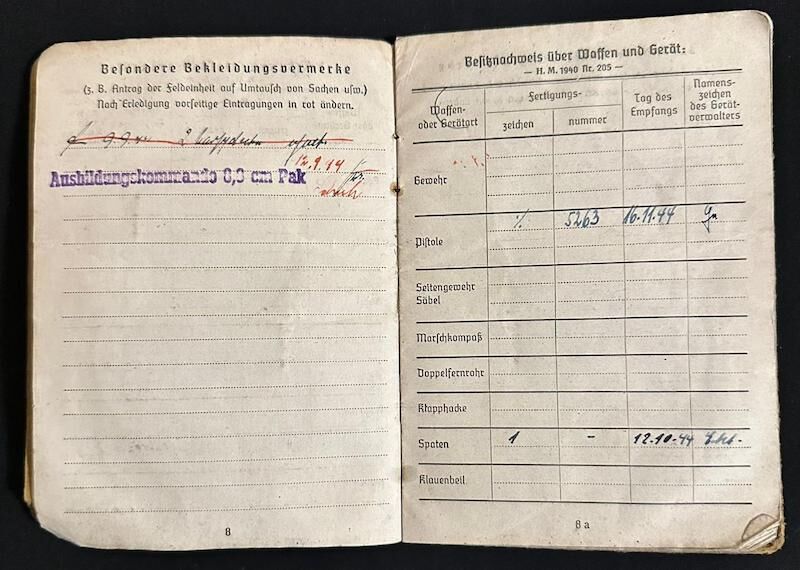 Besondere Bekleidungsvermerke
(z. B. Antrag der Feldeinheit auf Umtausch von Sachen usw.)
Nach Erledigung vorseitige Eintragungen in rot ändern.
9.9.44 2
12.9.44
Ausbildungskommando 8,8 cm Pak
8
Besitznachweis über Waffen und Gerät:
— H. M. 1940 Nr. 205 —
Waffen- oder Gerätart
Fertigungs-
zeichen
nummer
Tag des Empfangs
Namens-zeichen des Gerät-verwalters
Gewehr
Pistole ·/. 5263 16.11.44
Seitengewehr
Säbel
Marschkompaß
Doppelfernrohr
Klapphacke
Spaten 1 - 12.10.44
Klauenbeil
8 a